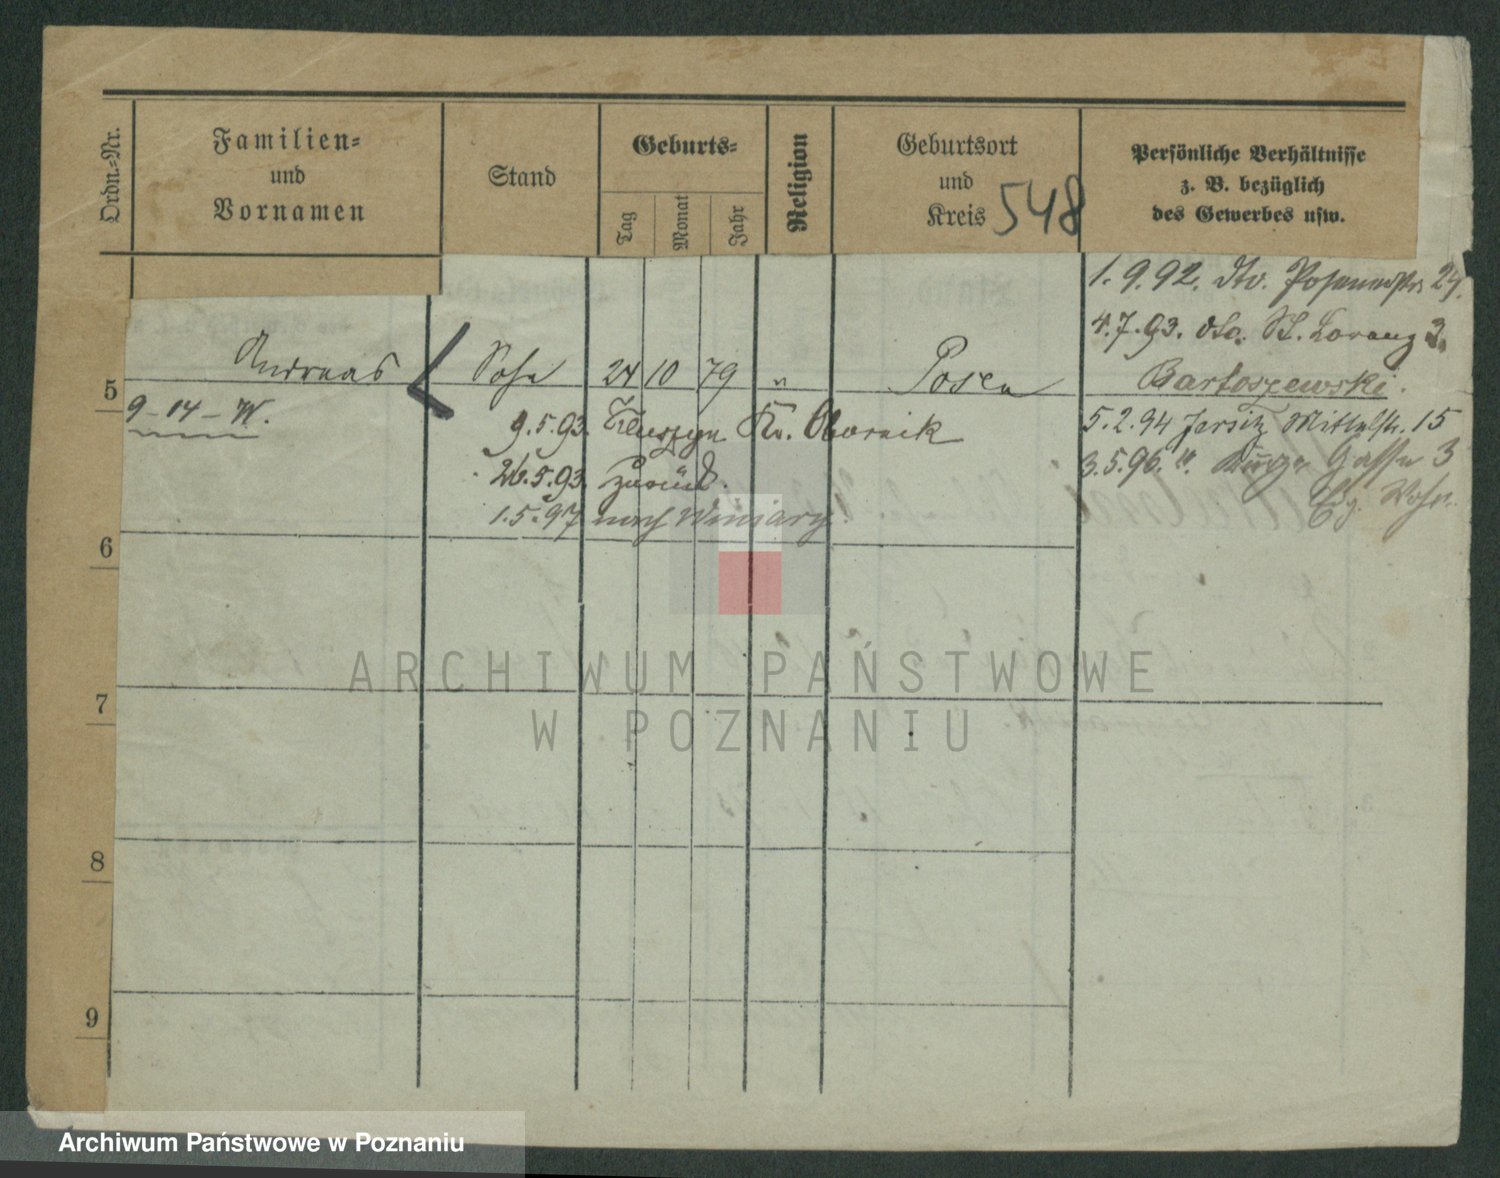 Ordn.-Nr.
Familien-
und
Vornamen
Stand
Geburts-
Tag
Monat
Jahr
Religion
Geburtsort
und
Kreis 548
Persönliche Verhältnisse
z. B. bezüglich
des Gewerbes usw.
1.9.92. dto. 24.
4.7.93. dto. St. Lorenz 3.
5 Andreas Sohn 24 10 79 " Posen
Bartoszewski.
9-14-W.
9.5.93. Kr. Obornik
5.2.94 Jersitz Mittelstr. 15
26.5.93. zurück.
3.5.96. " Gasse 3
1.5.97 nach Winiary
6
7
8
9
ARCHIWUM PAŃSTWOWE
W POZNANIU
Archiwum Państwowe w Poznaniu